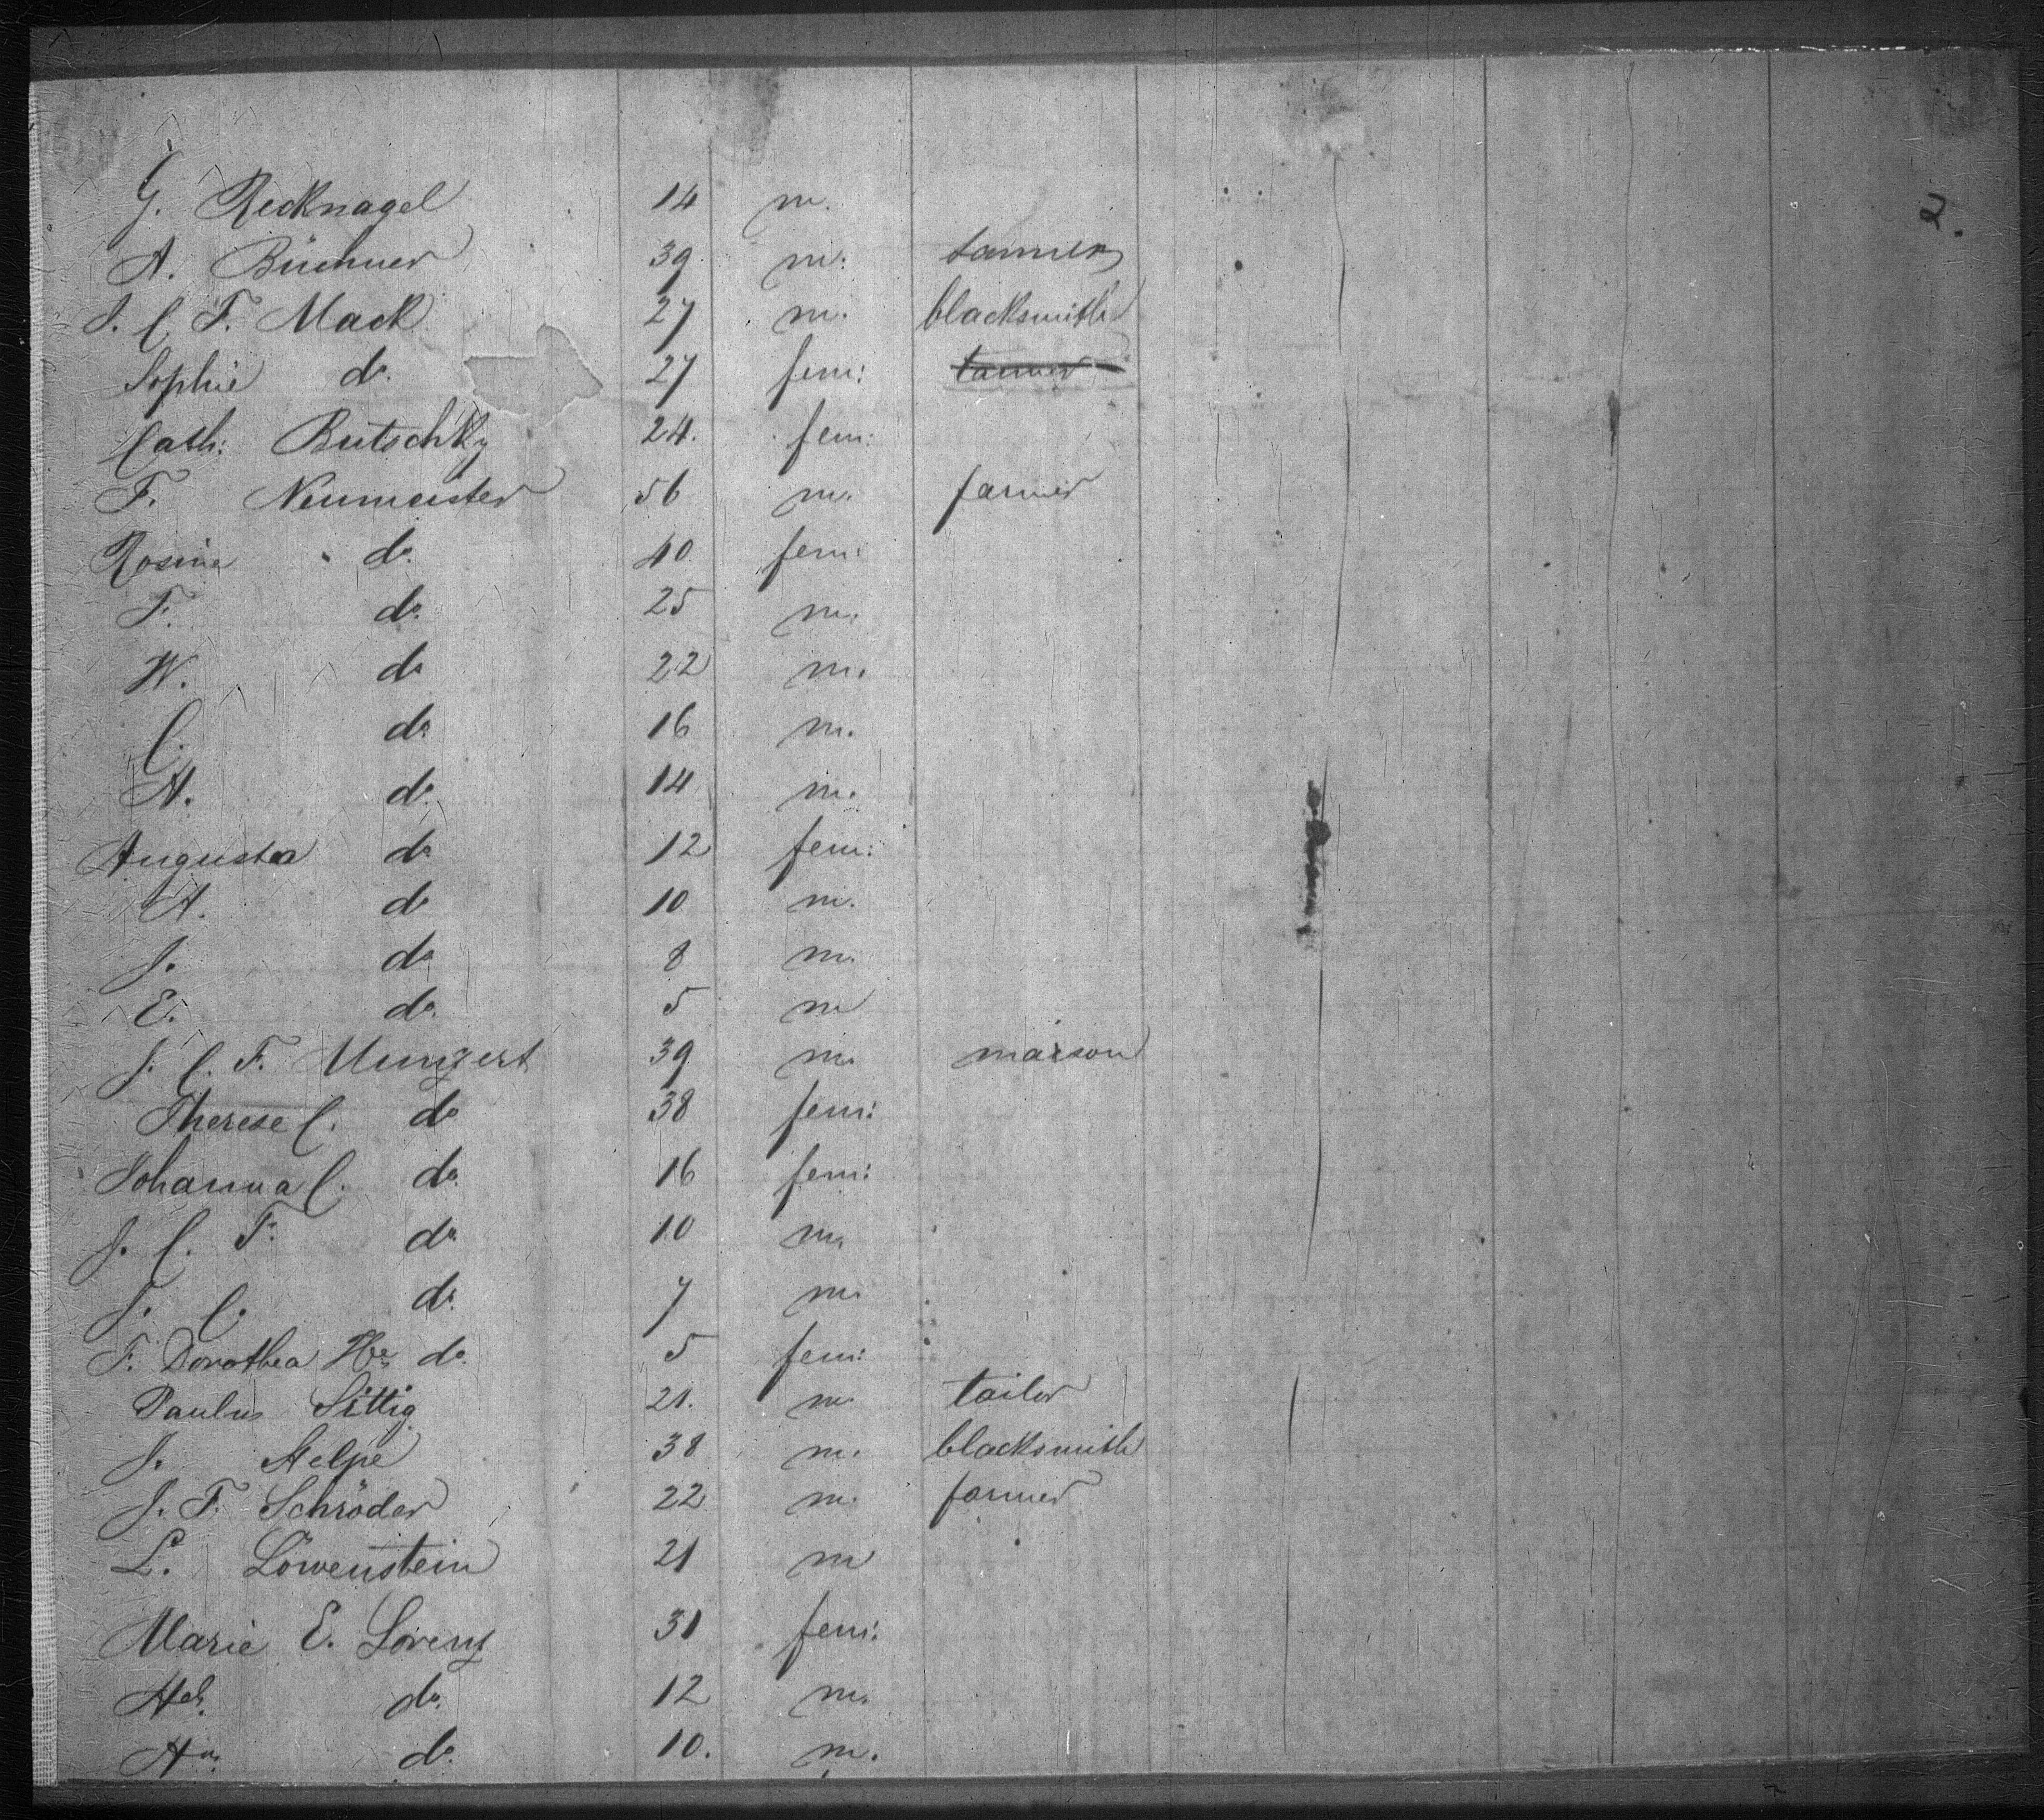 2.
G. Recknagel 14 m.
A. Büchner 39 m. tanner
J. C. F. Mack 27 m. blacksmith
Sophie do. 27 fem: tanner
Cath: Butschky 24. fem:
F. Neumeister 56 m. farmer
Rosine do. 40 fem:
F. do. 25 m.
W. do 22 m.
C. do 16 m.
A. do. 14 m.
Augusta do 12 fem:
A. do 10 m.
J. do 8 m.
E. do. 5 m
J. C. F. Mungert 39 m. maison
Therese C. do 38 fem:
Johanna C. do. 16 fem:
J. C. F. do. 10 m.
J. C. do. 7 m.
F. Dorothea do. 5 fem:
Paulus Sittig 21. m. tailor
J. Helpe 38 m. blacksmith
J. F. Schröder 22 m. farmer
L. Löwenstein 21 m
Marie E. Lorenz 31 fem:
Hch. do. 12 m.
Hn. do. 10. m.